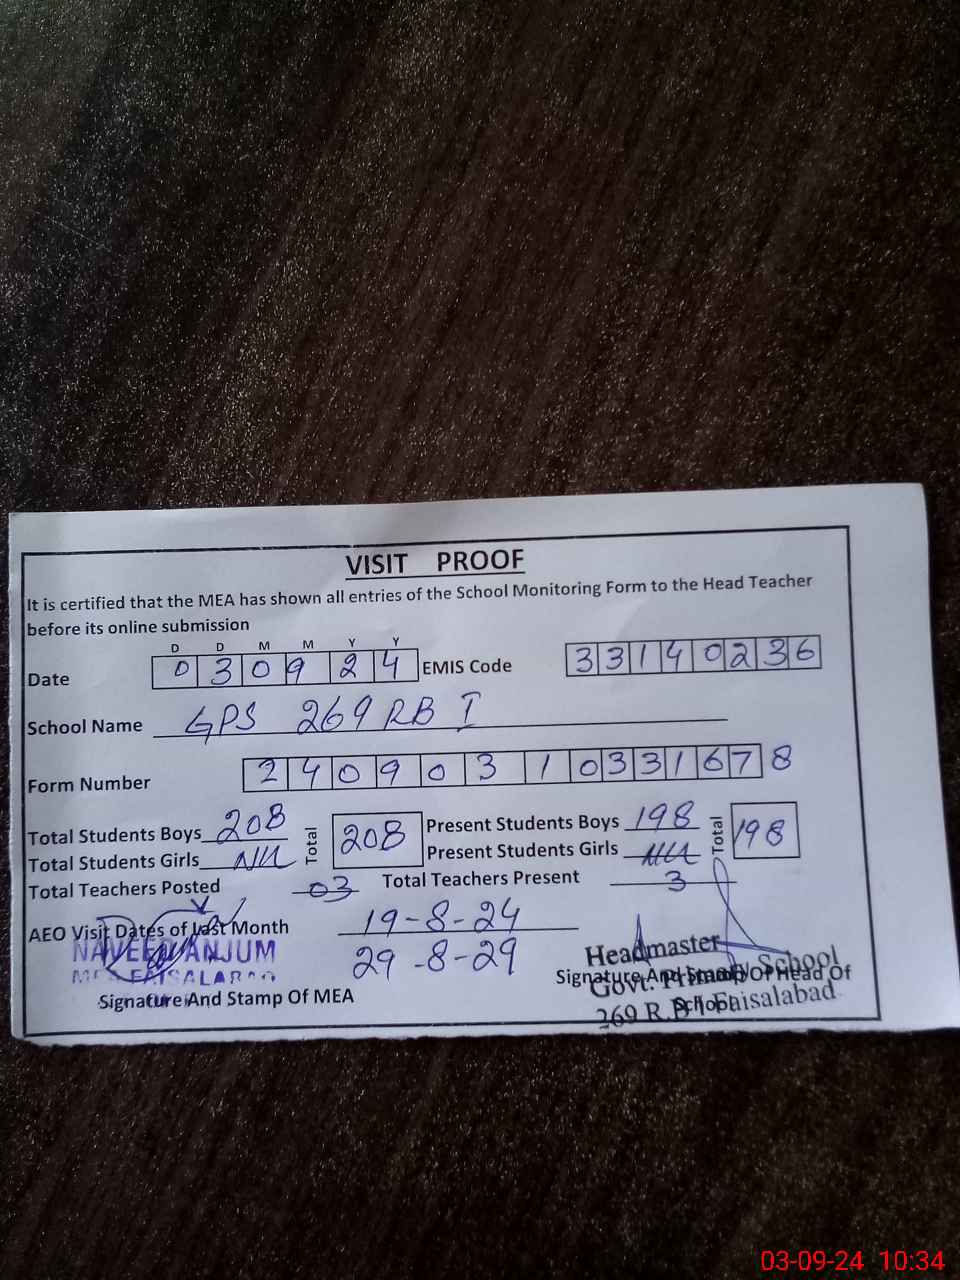 VISIT PROOF
It is certified that the MEA has shown all entries of the School Monitoring Form to the Head Teacher
before its online submission
D D M M Y Y
Date 0 3 0 9 2 4 EMIS Code 3 3 1 4 0 2 3 6
School Name GPS 269 RB I
Form Number 2 4 0 9 0 3 1 0 3 3 1 6 7 8
Total Students Boys 208 Total 208 Present Students Boys 198 Total 198
Total Students Girls Nil Present Students Girls Nil
Total Teachers Posted 03 Total Teachers Present 3
AEO Visit Dates of Last Month 19-8-24
29-8-29
NAVEED ANJUM
MEA FAISALABAD
Signature And Stamp Of MEA
Headmaster
Signature And Stamp Of Head Of
School
Govt. Primary School
269 R.B I Faisalabad
03-09-24 10:34